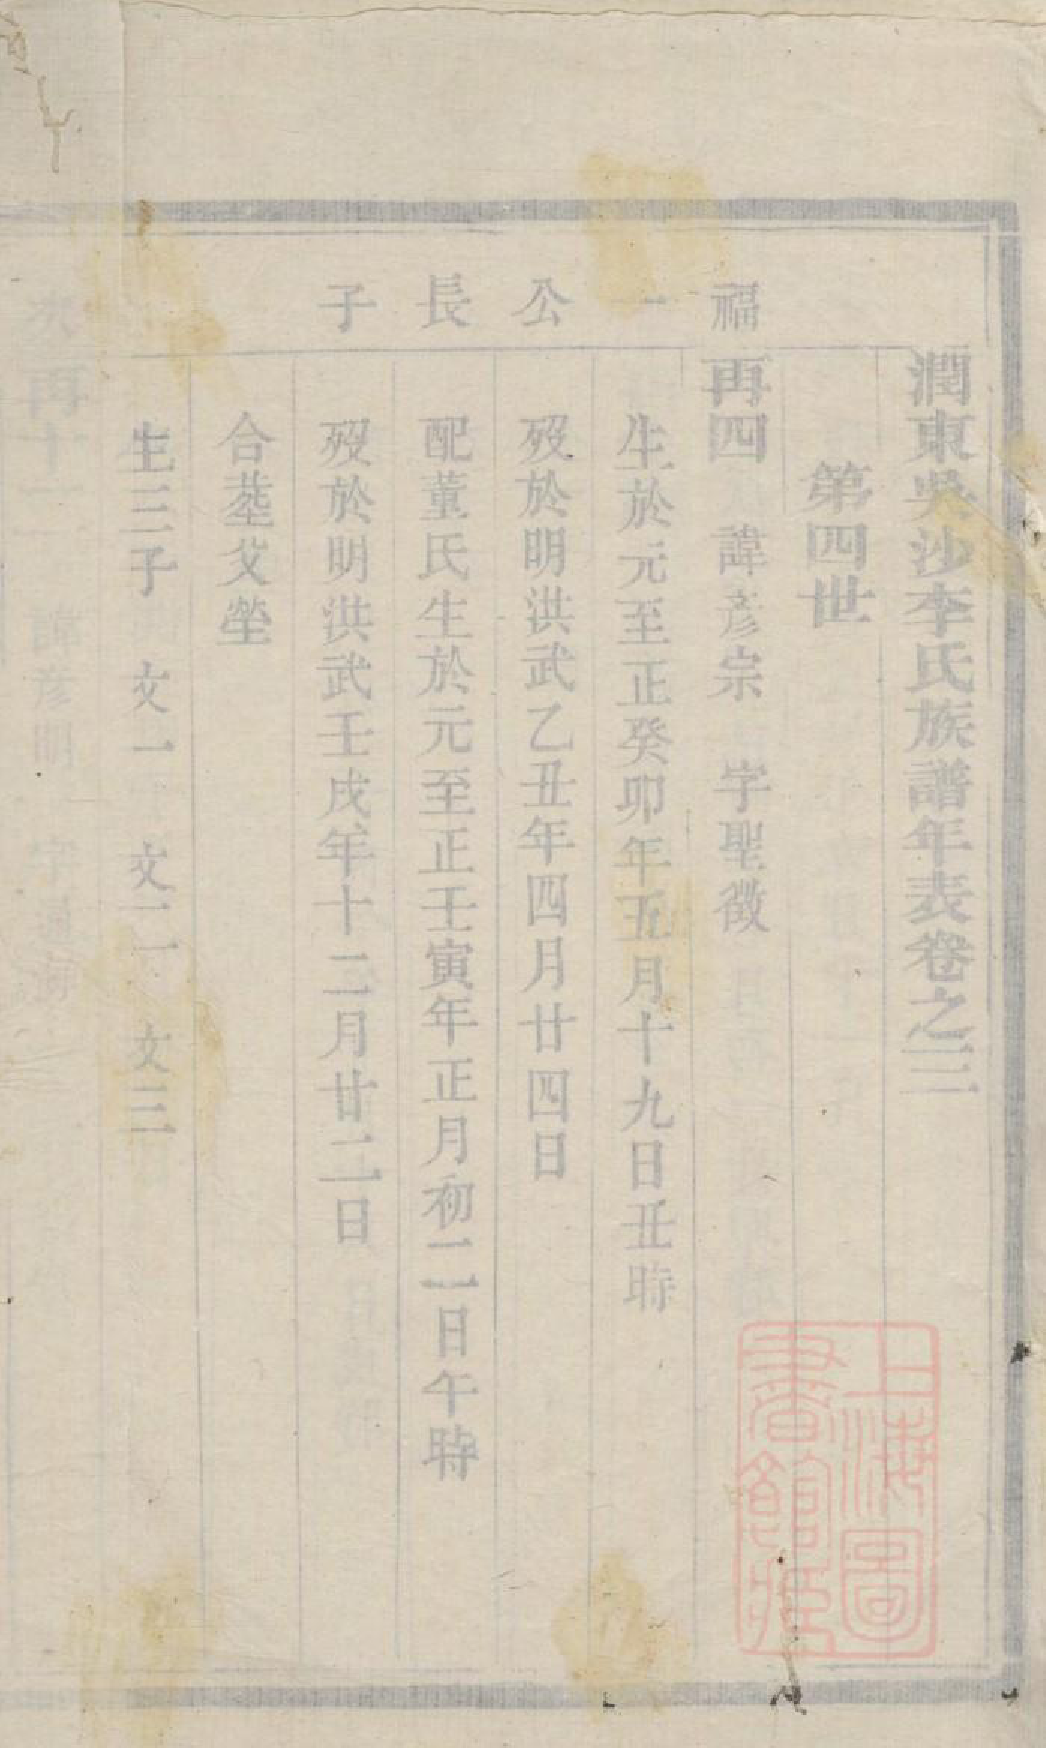 潤東吳沙李氏族譜年表卷之三
第四世
福一公長子
再四 諱彥宗 字聖徵
生於元至正癸卯年五月十九日丑時
歿於明洪武乙丑年四月廿四日
配董氏生於元至正壬寅年正月初二日午時
歿於明洪武壬戌年十二月廿二日
合塟父塋
生三子 文一 文二 文三
次
再十一 諱彥明 字
上海圖書館藏